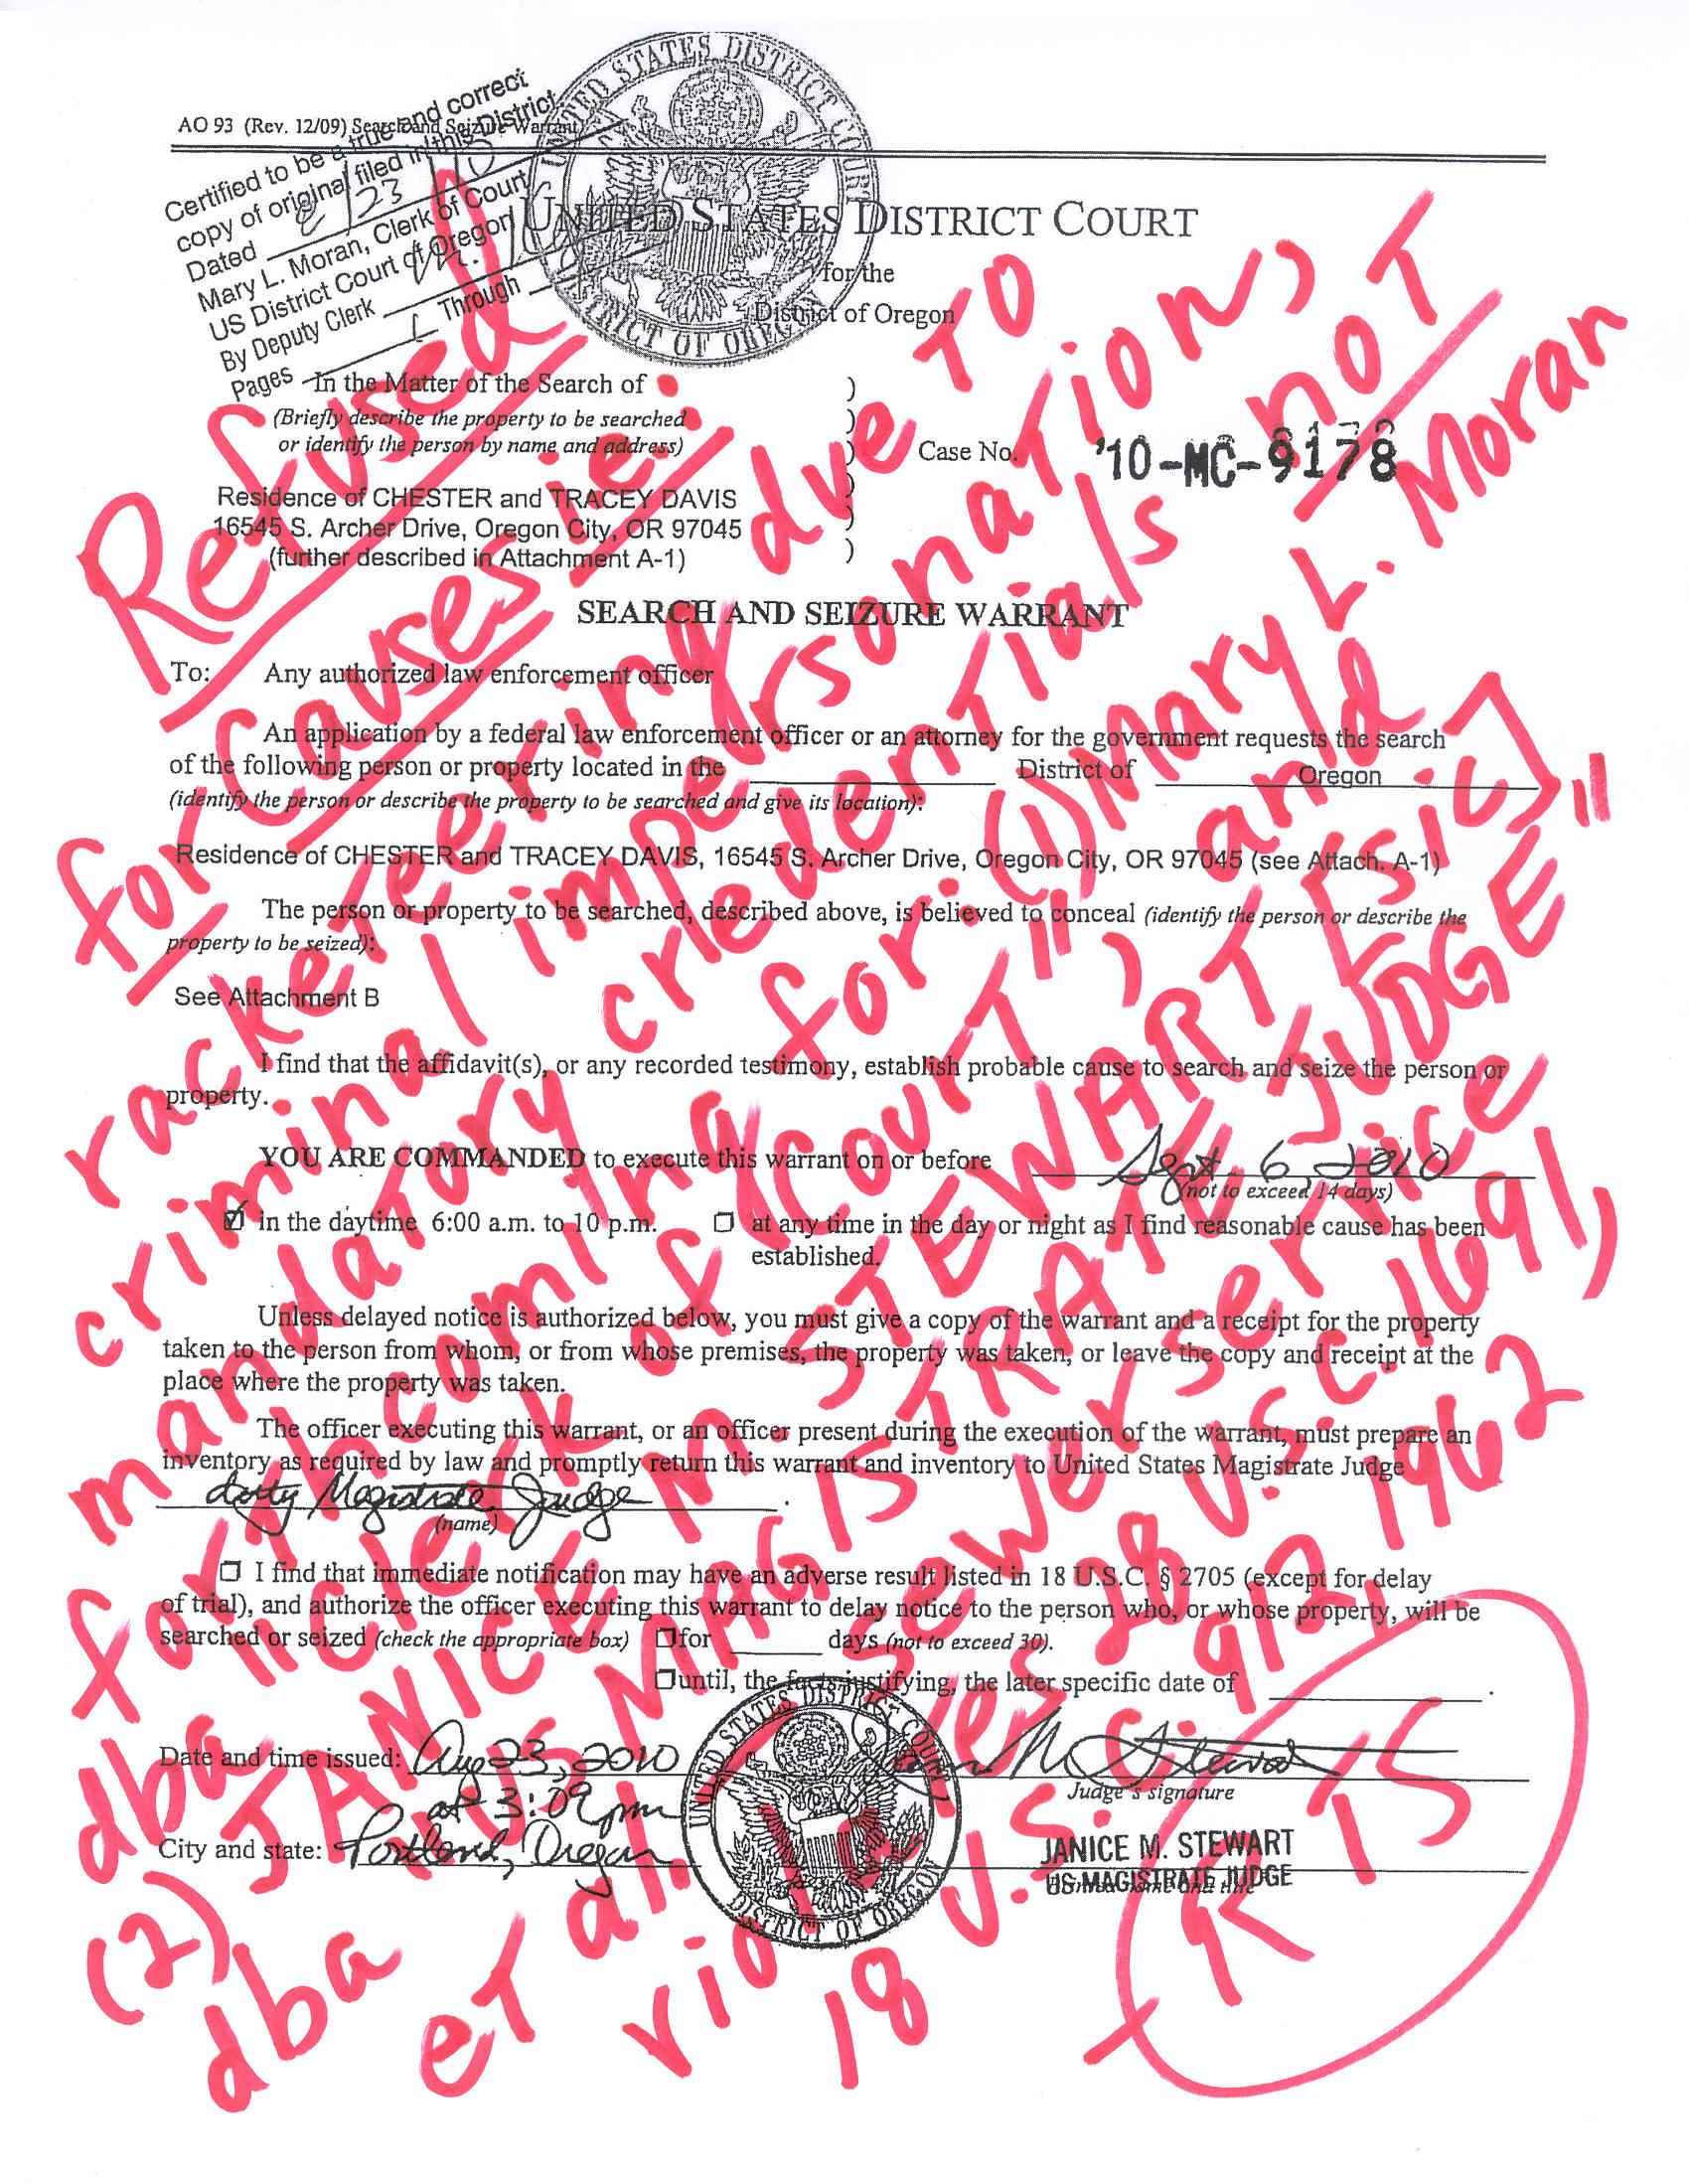 AO 93 (Rev. 12/09) Search and Seizure Warrant
Certified to be a true and correct
copy of original filed in this District
Dated 8/23/10
Mary L. Moran, Clerk of Court
US District Court of Oregon
By Deputy Clerk
Pages 1 Through
UNITED STATES DISTRICT COURT
DISTRICT OF OREGON
UNITED STATES DISTRICT COURT
for the
District of Oregon
In the Matter of the Search of
(Briefly describe the property to be searched
or identify the person by name and address)
Residence of CHESTER and TRACEY DAVIS
16545 S. Archer Drive, Oregon City, OR 97045
(further described in Attachment A-1)
)
)
)
)
)
)
Case No. '10-MC-9178
SEARCH AND SEIZURE WARRANT
To: Any authorized law enforcement officer
An application by a federal law enforcement officer or an attorney for the government requests the search
of the following person or property located in the District of Oregon
(identify the person or describe the property to be searched and give its location):
Residence of CHESTER and TRACEY DAVIS, 16545 S. Archer Drive, Oregon City, OR 97045 (see Attach. A-1)
The person or property to be searched, described above, is believed to conceal (identify the person or describe the
property to be seized):
See Attachment B
I find that the affidavit(s), or any recorded testimony, establish probable cause to search and seize the person or
property.
YOU ARE COMMANDED to execute this warrant on or before Sept. 6, 2010
(not to exceed 14 days)
in the daytime 6:00 a.m. to 10 p.m. at any time in the day or night as I find reasonable cause has been
established.
Unless delayed notice is authorized below, you must give a copy of the warrant and a receipt for the property
taken to the person from whom, or from whose premises, the property was taken, or leave the copy and receipt at the
place where the property was taken.
The officer executing this warrant, or an officer present during the execution of the warrant, must prepare an
inventory as required by law and promptly return this warrant and inventory to United States Magistrate Judge
duty Magistrate Judge
(name)
I find that immediate notification may have an adverse result listed in 18 U.S.C. § 2705 (except for delay
of trial), and authorize the officer executing this warrant to delay notice to the person who, or whose property, will be
searched or seized (check the appropriate box) for days (not to exceed 30).
until, the facts justifying, the later specific date of .
Date and time issued: Aug 23, 2010
at 3:09 pm
Judge's signature
City and state: Portland, Oregon
JANICE M. STEWART
US MAGISTRATE JUDGE
UNITED STATES DISTRICT COURT
DISTRICT OF OREGON
Refused
for Causes ie:
racketeering due to
criminal impersonation,
mandatory credentials not
forthcoming for: (1) Mary L. Moran
dba "clerk of Court", and
(2) JANICE M. STEWART [sic]
dba "US MAGISTRATE JUDGE"
et al. sewer service
violates 28 U.S.C. 1691,
18 U.S.C. 912, 1962